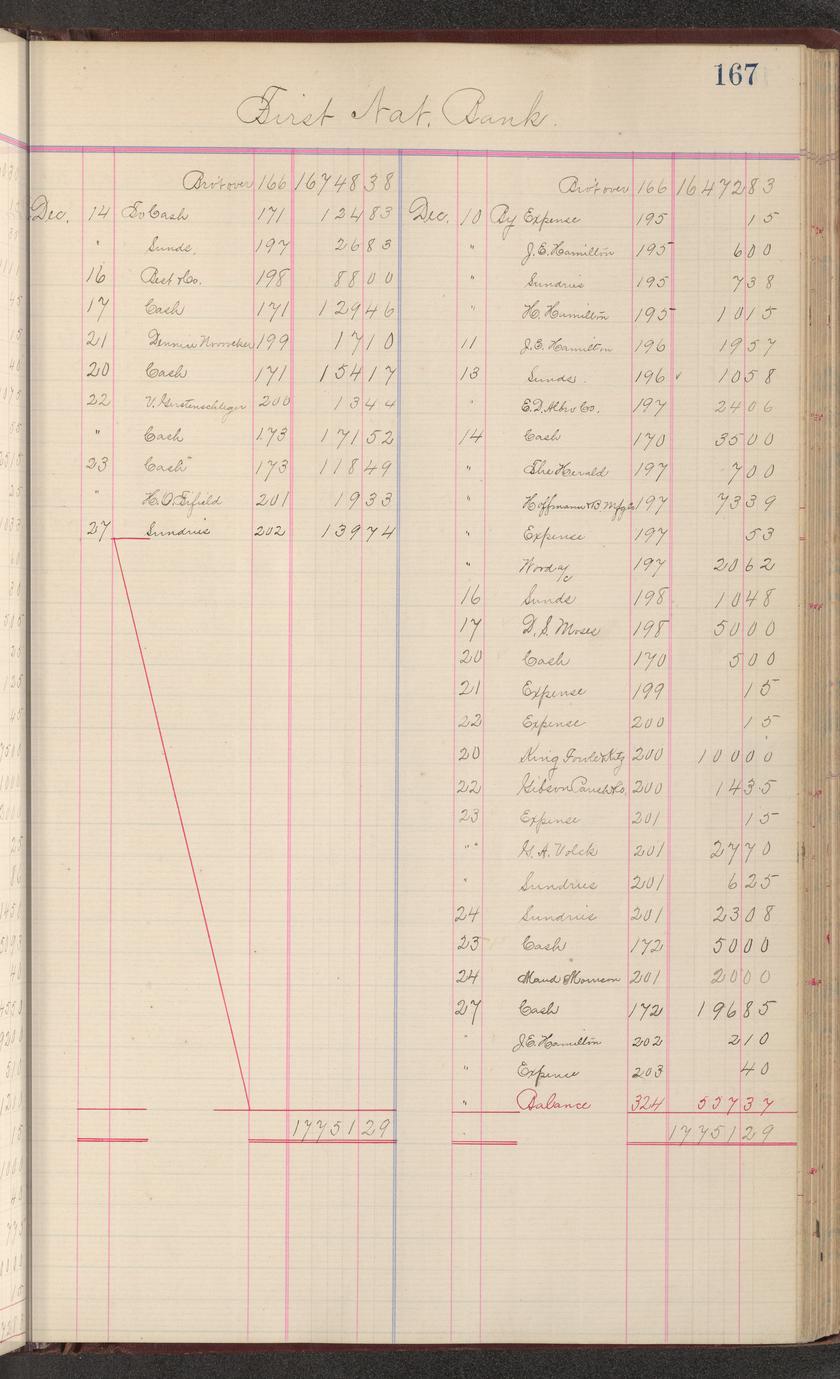 167
First Nat. Bank.
Bro't over 166 16748 38
Dec. 14 To Cash 171 124 83
" Sunds. 197 26 83
16 Best & Co. 198 88 00
17 Cash 171 129 46
21 Dennice 199 17 10
20 Cash 171 154 17
22 V. Gerstenschleger 200 13 44
" Cash 173 171 52
23 Cash 173 118 49
" H. O. Fifield 201 19 33
27 Sundries 202 139 74
17751 29
Bro't over 166 16472 83
Dec. 10 By Expense 195 15
" J. E. Hamilton 195 6 00
" Sundries 195 7 38
" H. Hamilton 195 10 15
11 J. E. Hamilton 196 19 57
13 Sunds. 196 10 58
" E. D. Albro Co. 197 24 06
14 Cash 170 35 00
" The Herald 197 7 00
" Hoffmann & B. Mfg Co 197 73 39
" Expense 197 53
" Wood a/c 197 20 62
16 Sunds 198 10 48
17 D. S. Moses 198 50 00
20 Cash 170 5 00
21 Expense 199 15
22 Expense 200 15
20 King Fowle & Katz 200 100 00
22 Gibson Parish & Co. 200 14 35
23 Expense 201 15
" G. A. Volck 201 27 70
" Sundries 201 6 25
24 Sundries 201 23 08
23 Cash 172 50 00
24 Maud Morrison 201 20 00
27 Cash 172 196 85
" J. E. Hamilton 202 2 10
" Expense 203 40
" Balance 324 557 37
17751 29